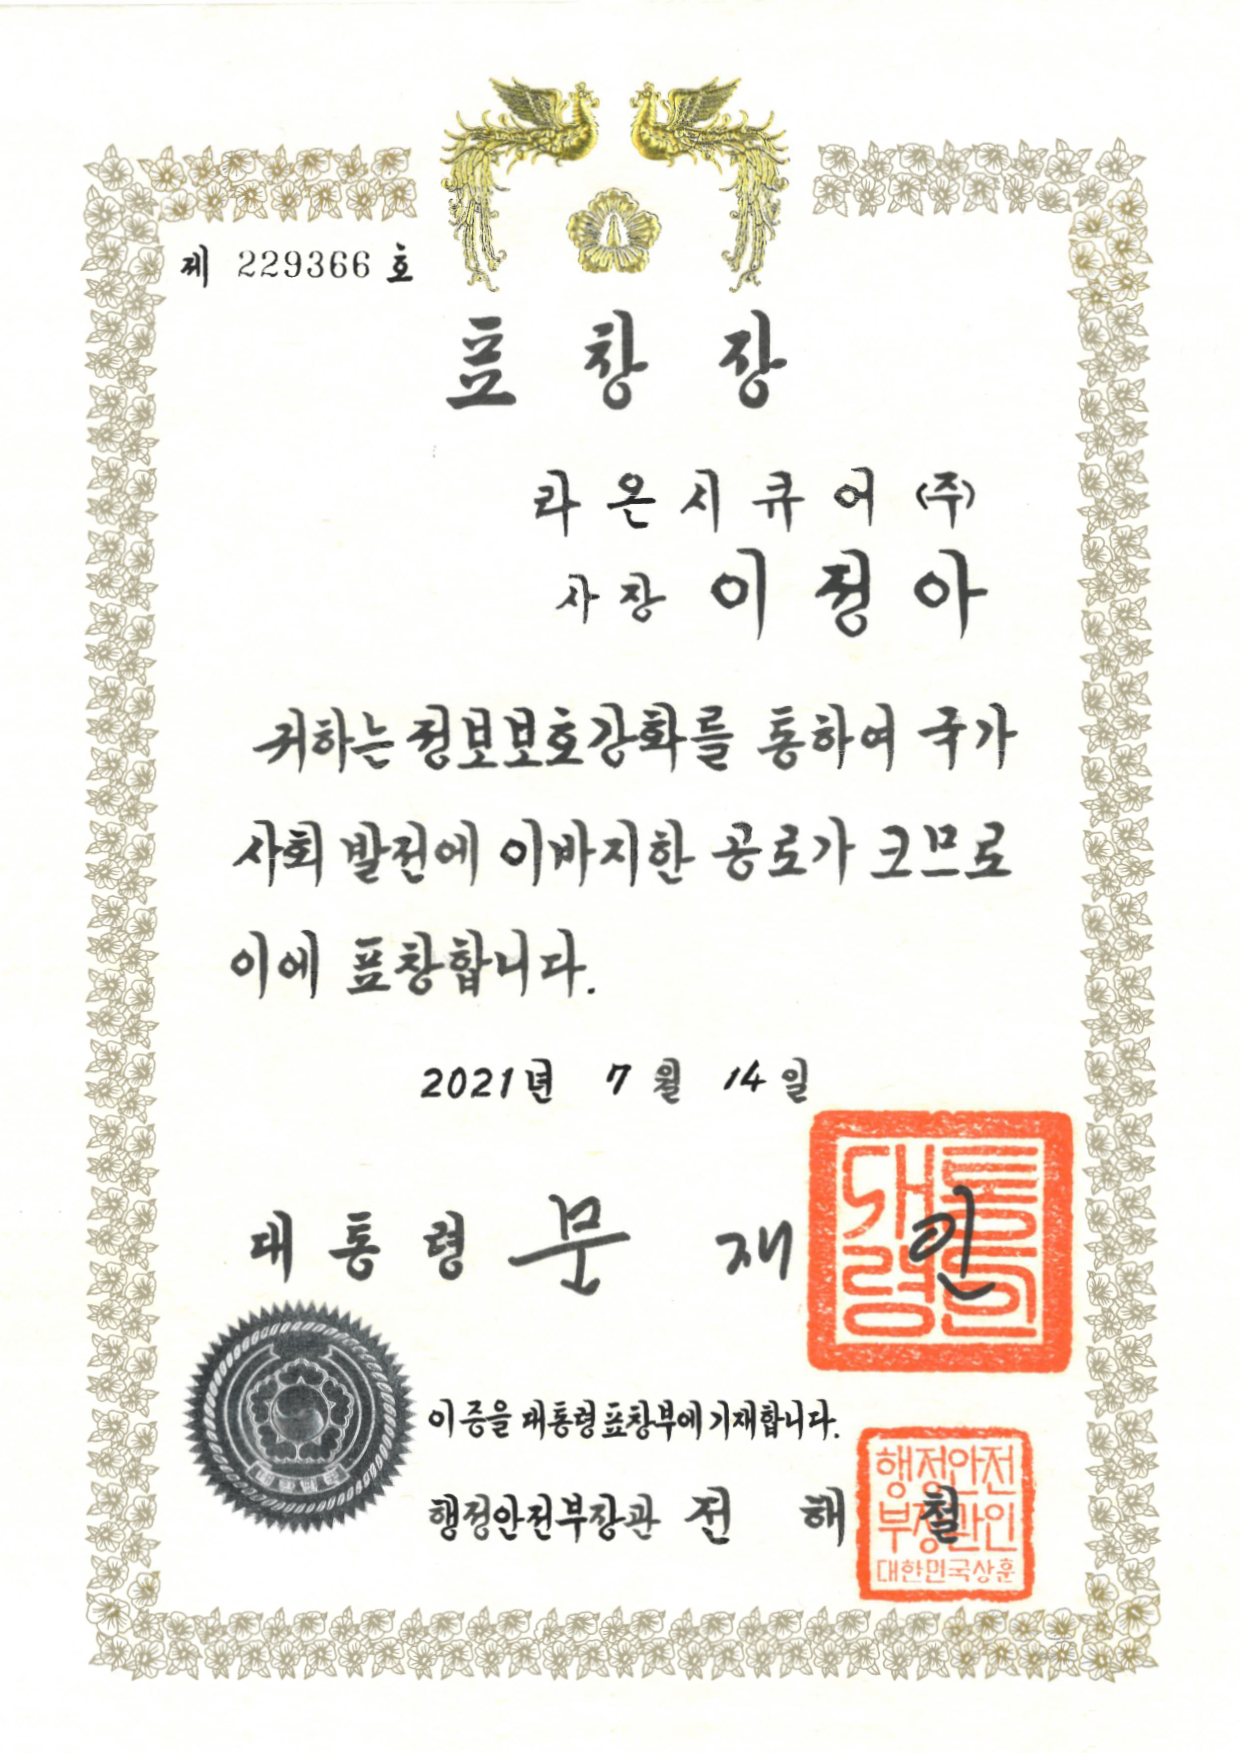 제 229366 호
표창장
라온시큐어(주)
사장 이정아
귀하는 정보보호강화를 통하여 국가
사회 발전에 이바지한 공로가 크므로
이에 표창합니다.
2021년 7월 14일
대통령 문재인
대통령의인
이 증을 대통령표창부에 기재합니다.
행정안전부장관 전해철
행정안전
부장관인
대한민국상훈